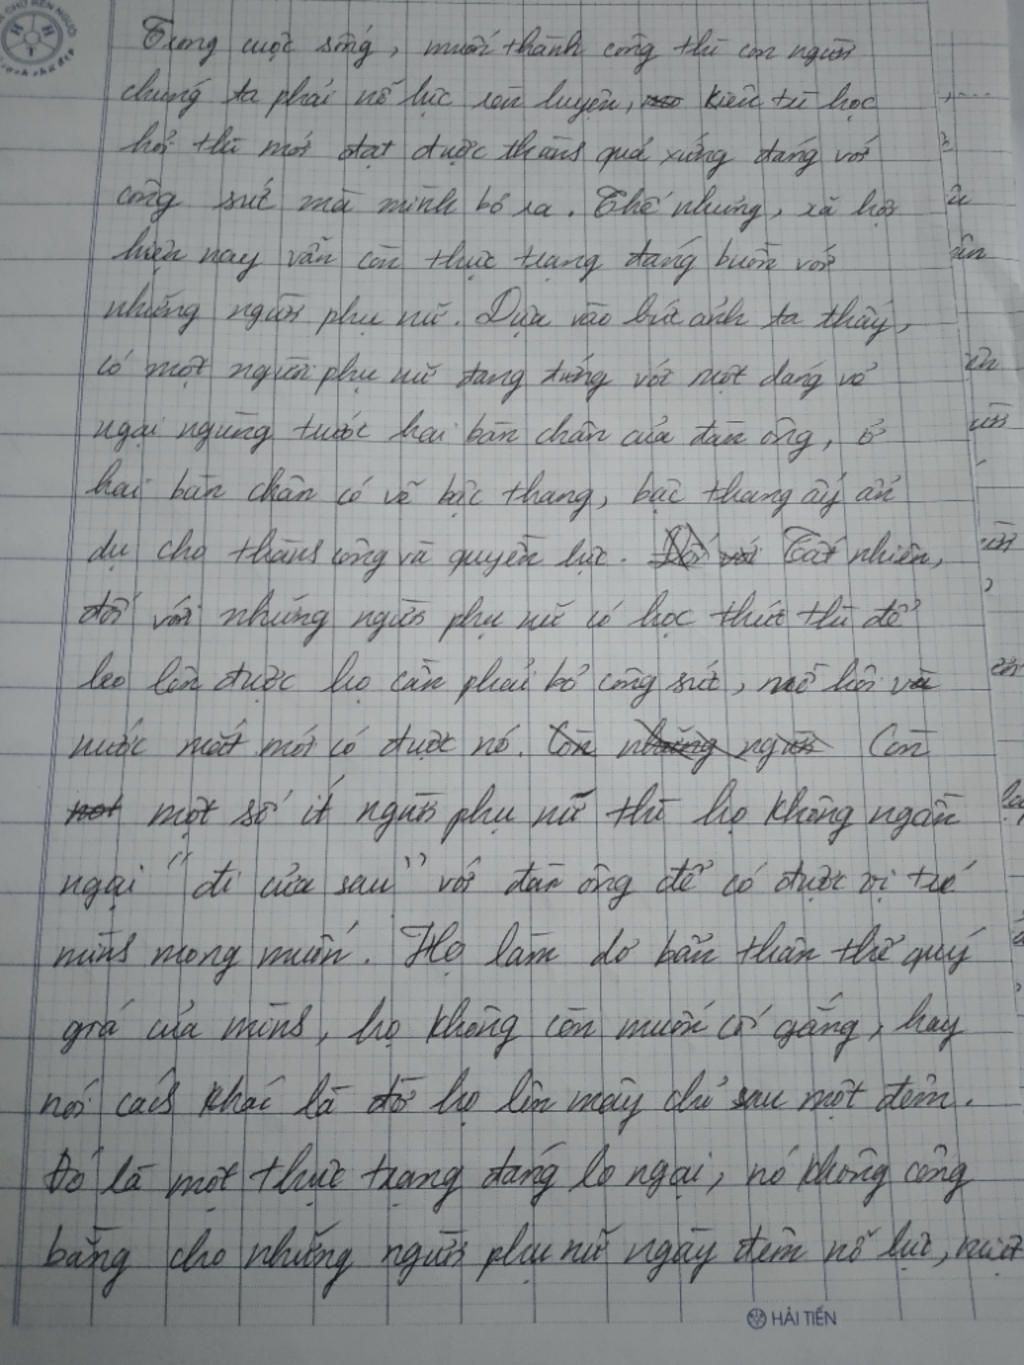 Trong cuộc sống, muốn thành công thì con người
chúng ta phải nổ lực rèn luyện, kiên trì học
hỏi thì mới đạt được thành quả xứng đáng với
công sức mà mình bỏ ra. Thế nhưng, xã hội
hiện nay vẫn còn thực trạng đáng buồn với
những người phụ nữ. Dựa vào bức ảnh ta thấy,
có một người phụ nữ đang đứng với một dáng vẻ
ngại ngùng trước hai bàn chân của đàn ông, ở
hai bàn chân có vẽ bậc thang, bậc thang ấy ẩn
dụ cho thành công và quyền lực. Tất nhiên,
đối với những người phụ nữ có học thức thì để
leo lên được họ cần phải bỏ công sức, mồ hôi và
nước mắt mới có được nó. Còn
một số ít người phụ nữ thì họ không ngần
ngại "đi cửa sau" với đàn ông để có được vị trí
mình mong muốn. Họ làm dơ bẩn thân thể quý
giá của mình, họ không còn muốn cố gắng, hay
nói cách khác là đỡ họ lên mây chỉ sau một đêm.
Đó là một thực trạng đáng lo ngại, nó không công
bằng cho những người phụ nữ ngày đêm nổ lực,
HẢI TIẾN